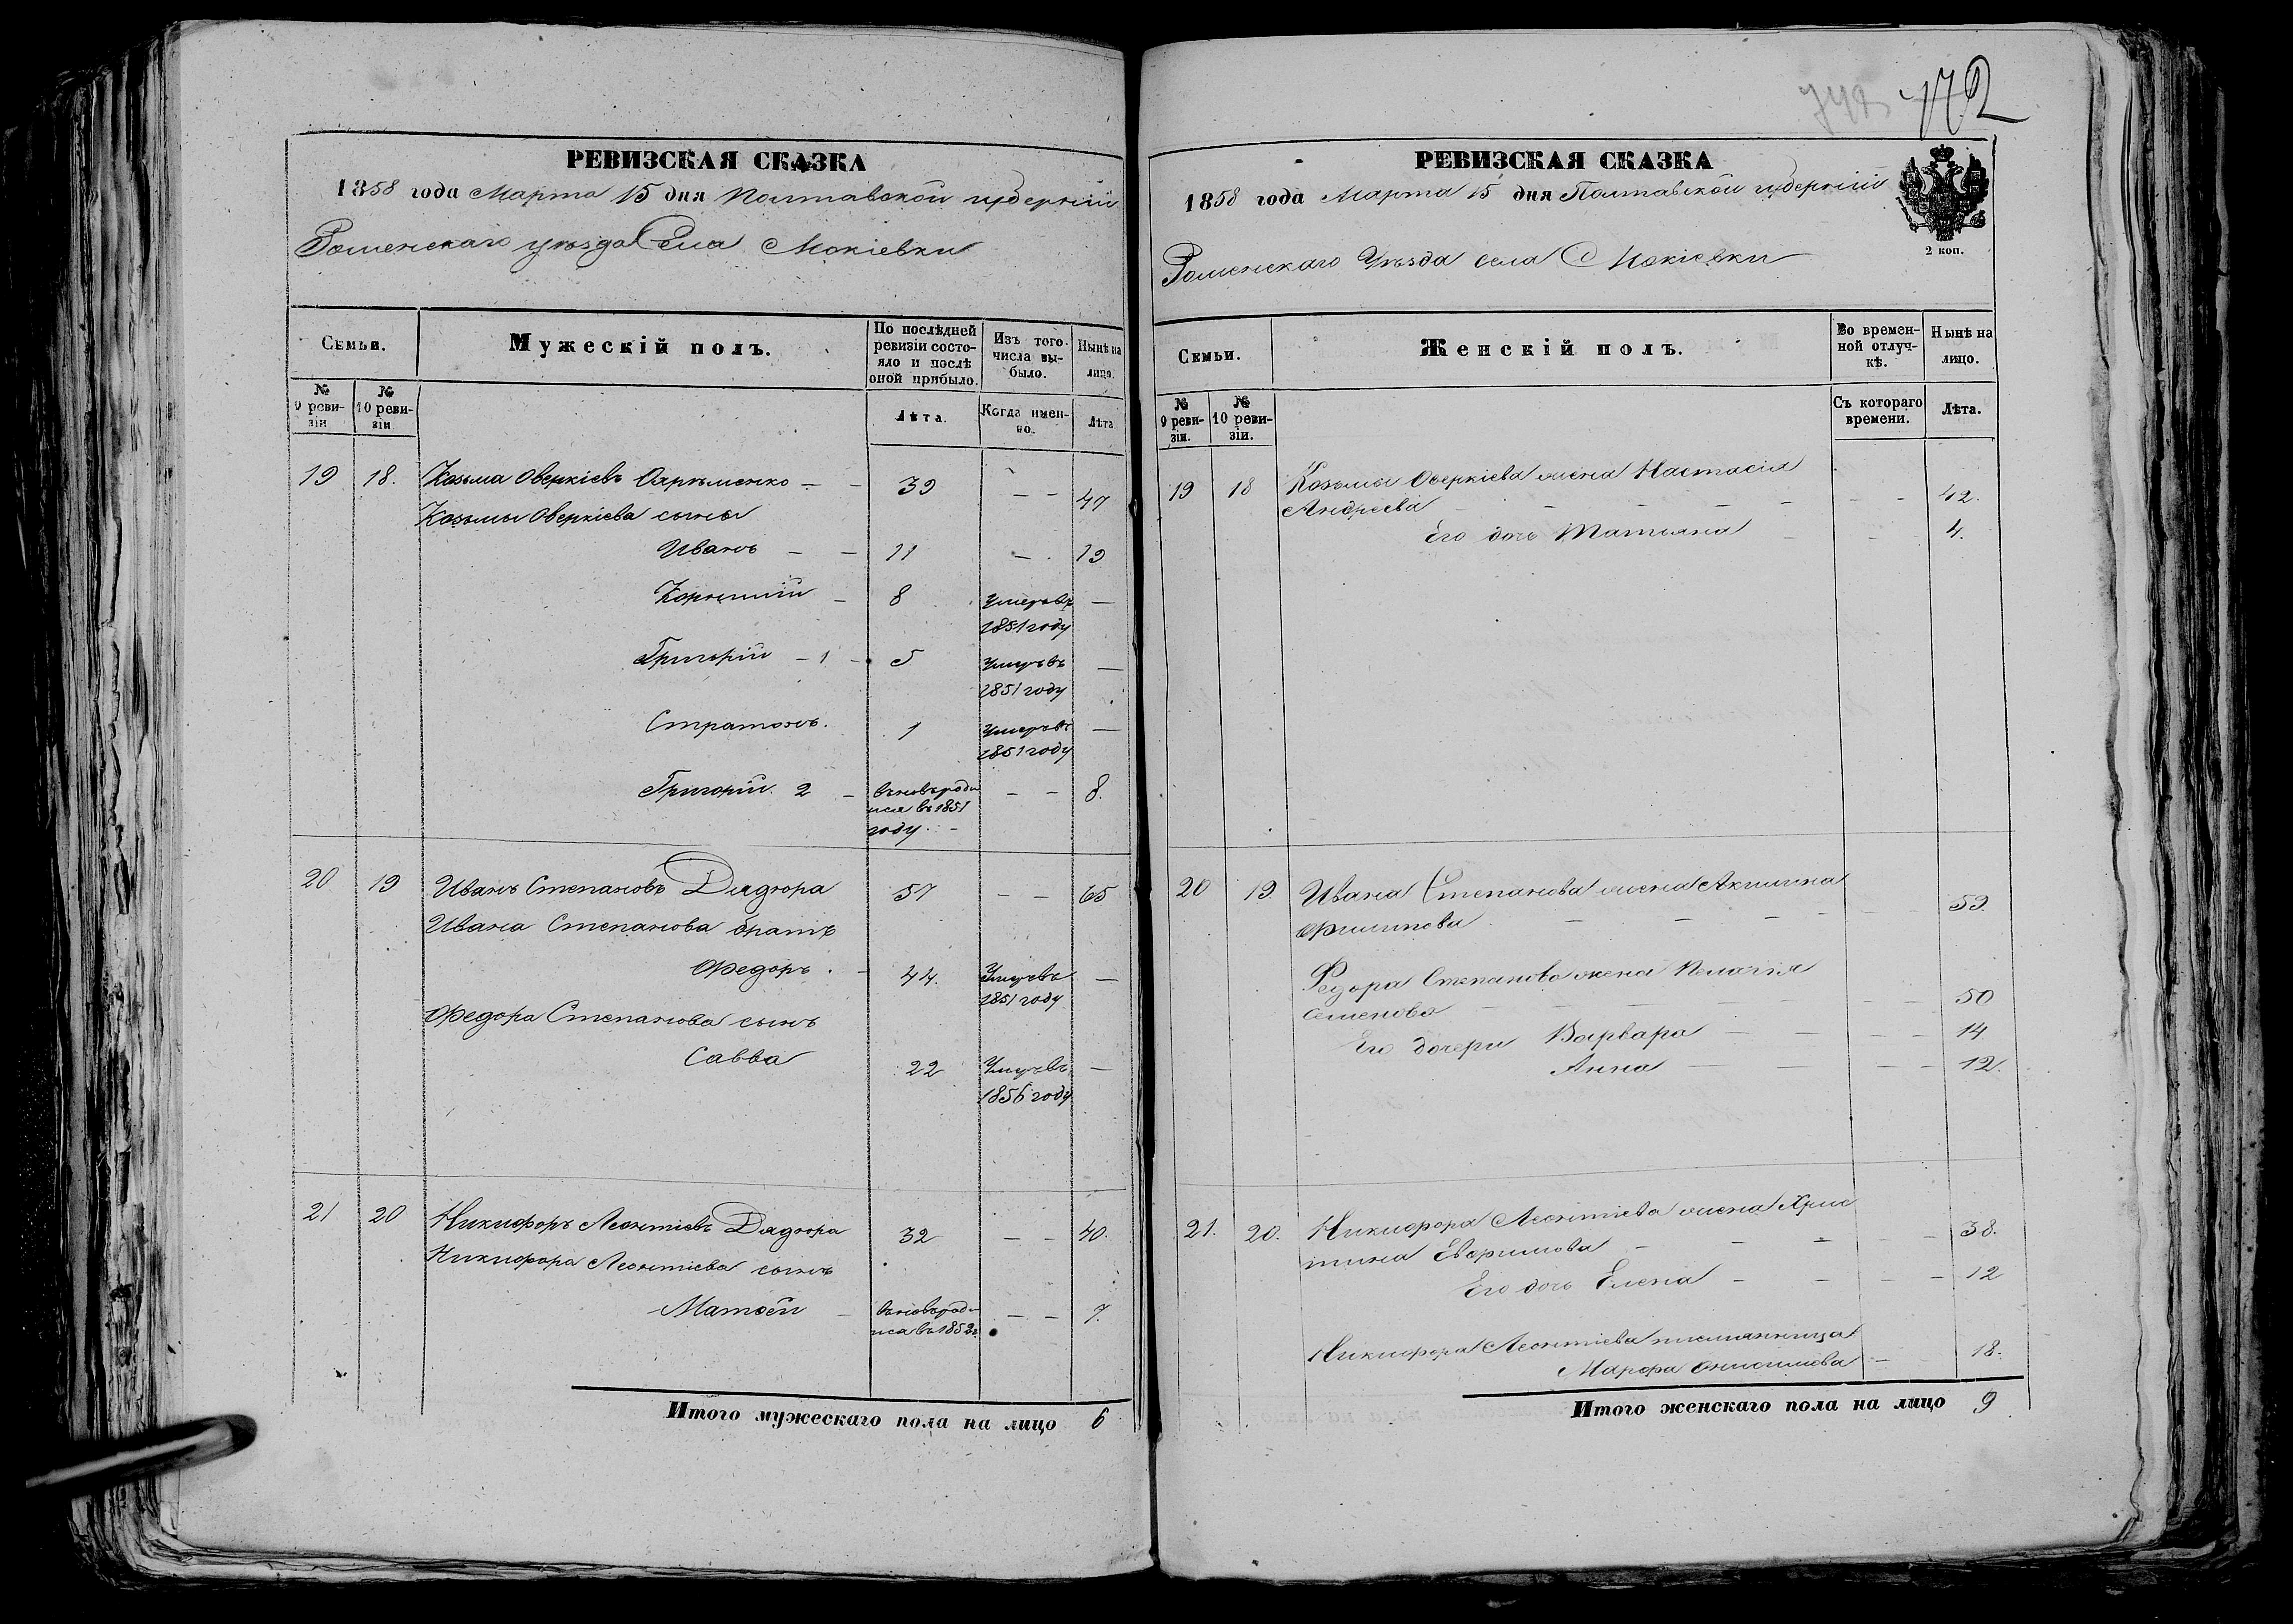 172
РЕВИЗСКАЯ СКАЗКА
1858 года Марта 15 дня Полтавской губерніи
Роменскаго уѣзда Села Мокіевки
Семьи.
Мужескій полъ.
По послѣдней ревизіи состояло и послѣ оной прибыло.
Изъ того числа выбыло.
Нынѣ на лицо.
№ 9 ревизіи
№ 10 ревизіи
Лѣта.
Когда именно.
Лѣта.
19 18. Козьма Оверкіевъ — — 39 — — 47
Козьмы Оверкіева сыны
Иванъ — — 11 — 19
Корнилій — 8 Умеръ въ —
1851 году
Григорій — 1 — 5 Умеръ въ —
1851 году
Стратонъ. 1 Умеръ въ —
1851 году
Григорій. 2 — вновь роди — — 8.
лся въ 1851
году. —
20 19 Иванъ Степановъ Дядюра 57 — — 65
Ивана Степанова братъ
Федоръ. — 44. Умеръ въ —
1851 году
Федора Степанова сынъ
Савва 22 Умеръ въ —
1856 году
21 20 Никифоръ Леонтіевъ Дядюра 32 — — 40.
Никифора Леонтіева сынъ
Матвѣй — вновь роди — — 7.
лся въ 1852 г.
Итого мужескаго пола на лицо 6
РЕВИЗСКАЯ СКАЗКА
1858 года Марта 15 дня Полтавской губерніи
Роменскаго Уѣзда села Мокіевки
2 коп.
Семьи.
Женскій полъ.
Во временной отлучкѣ.
Нынѣ на лицо.
№ 9 ревизіи.
№ 10 ревизіи.
Съ котораго времени.
Лѣта.
19 18 Козьмы Оверкіева жена Настасія
Андреева — — — — — — 42.
Его дочь Татьяна — — 4.
20 19. Ивана Степанова жена Акилина
Филипова — — — — 59.
Федора Степанова жена Пелагія
Семенова — — — — — — 50
Его дочери Варвара — — — — 14
Анна — — — — 12.
21. 20. Никифора Леонтіева жена Хрис
тина Евфимова — — — — 38.
Его дочь Елена — — — — 12
Никифора Леонтіева племянница
Марфа Онисимова — 18.
Итого женскаго пола на лицо 9